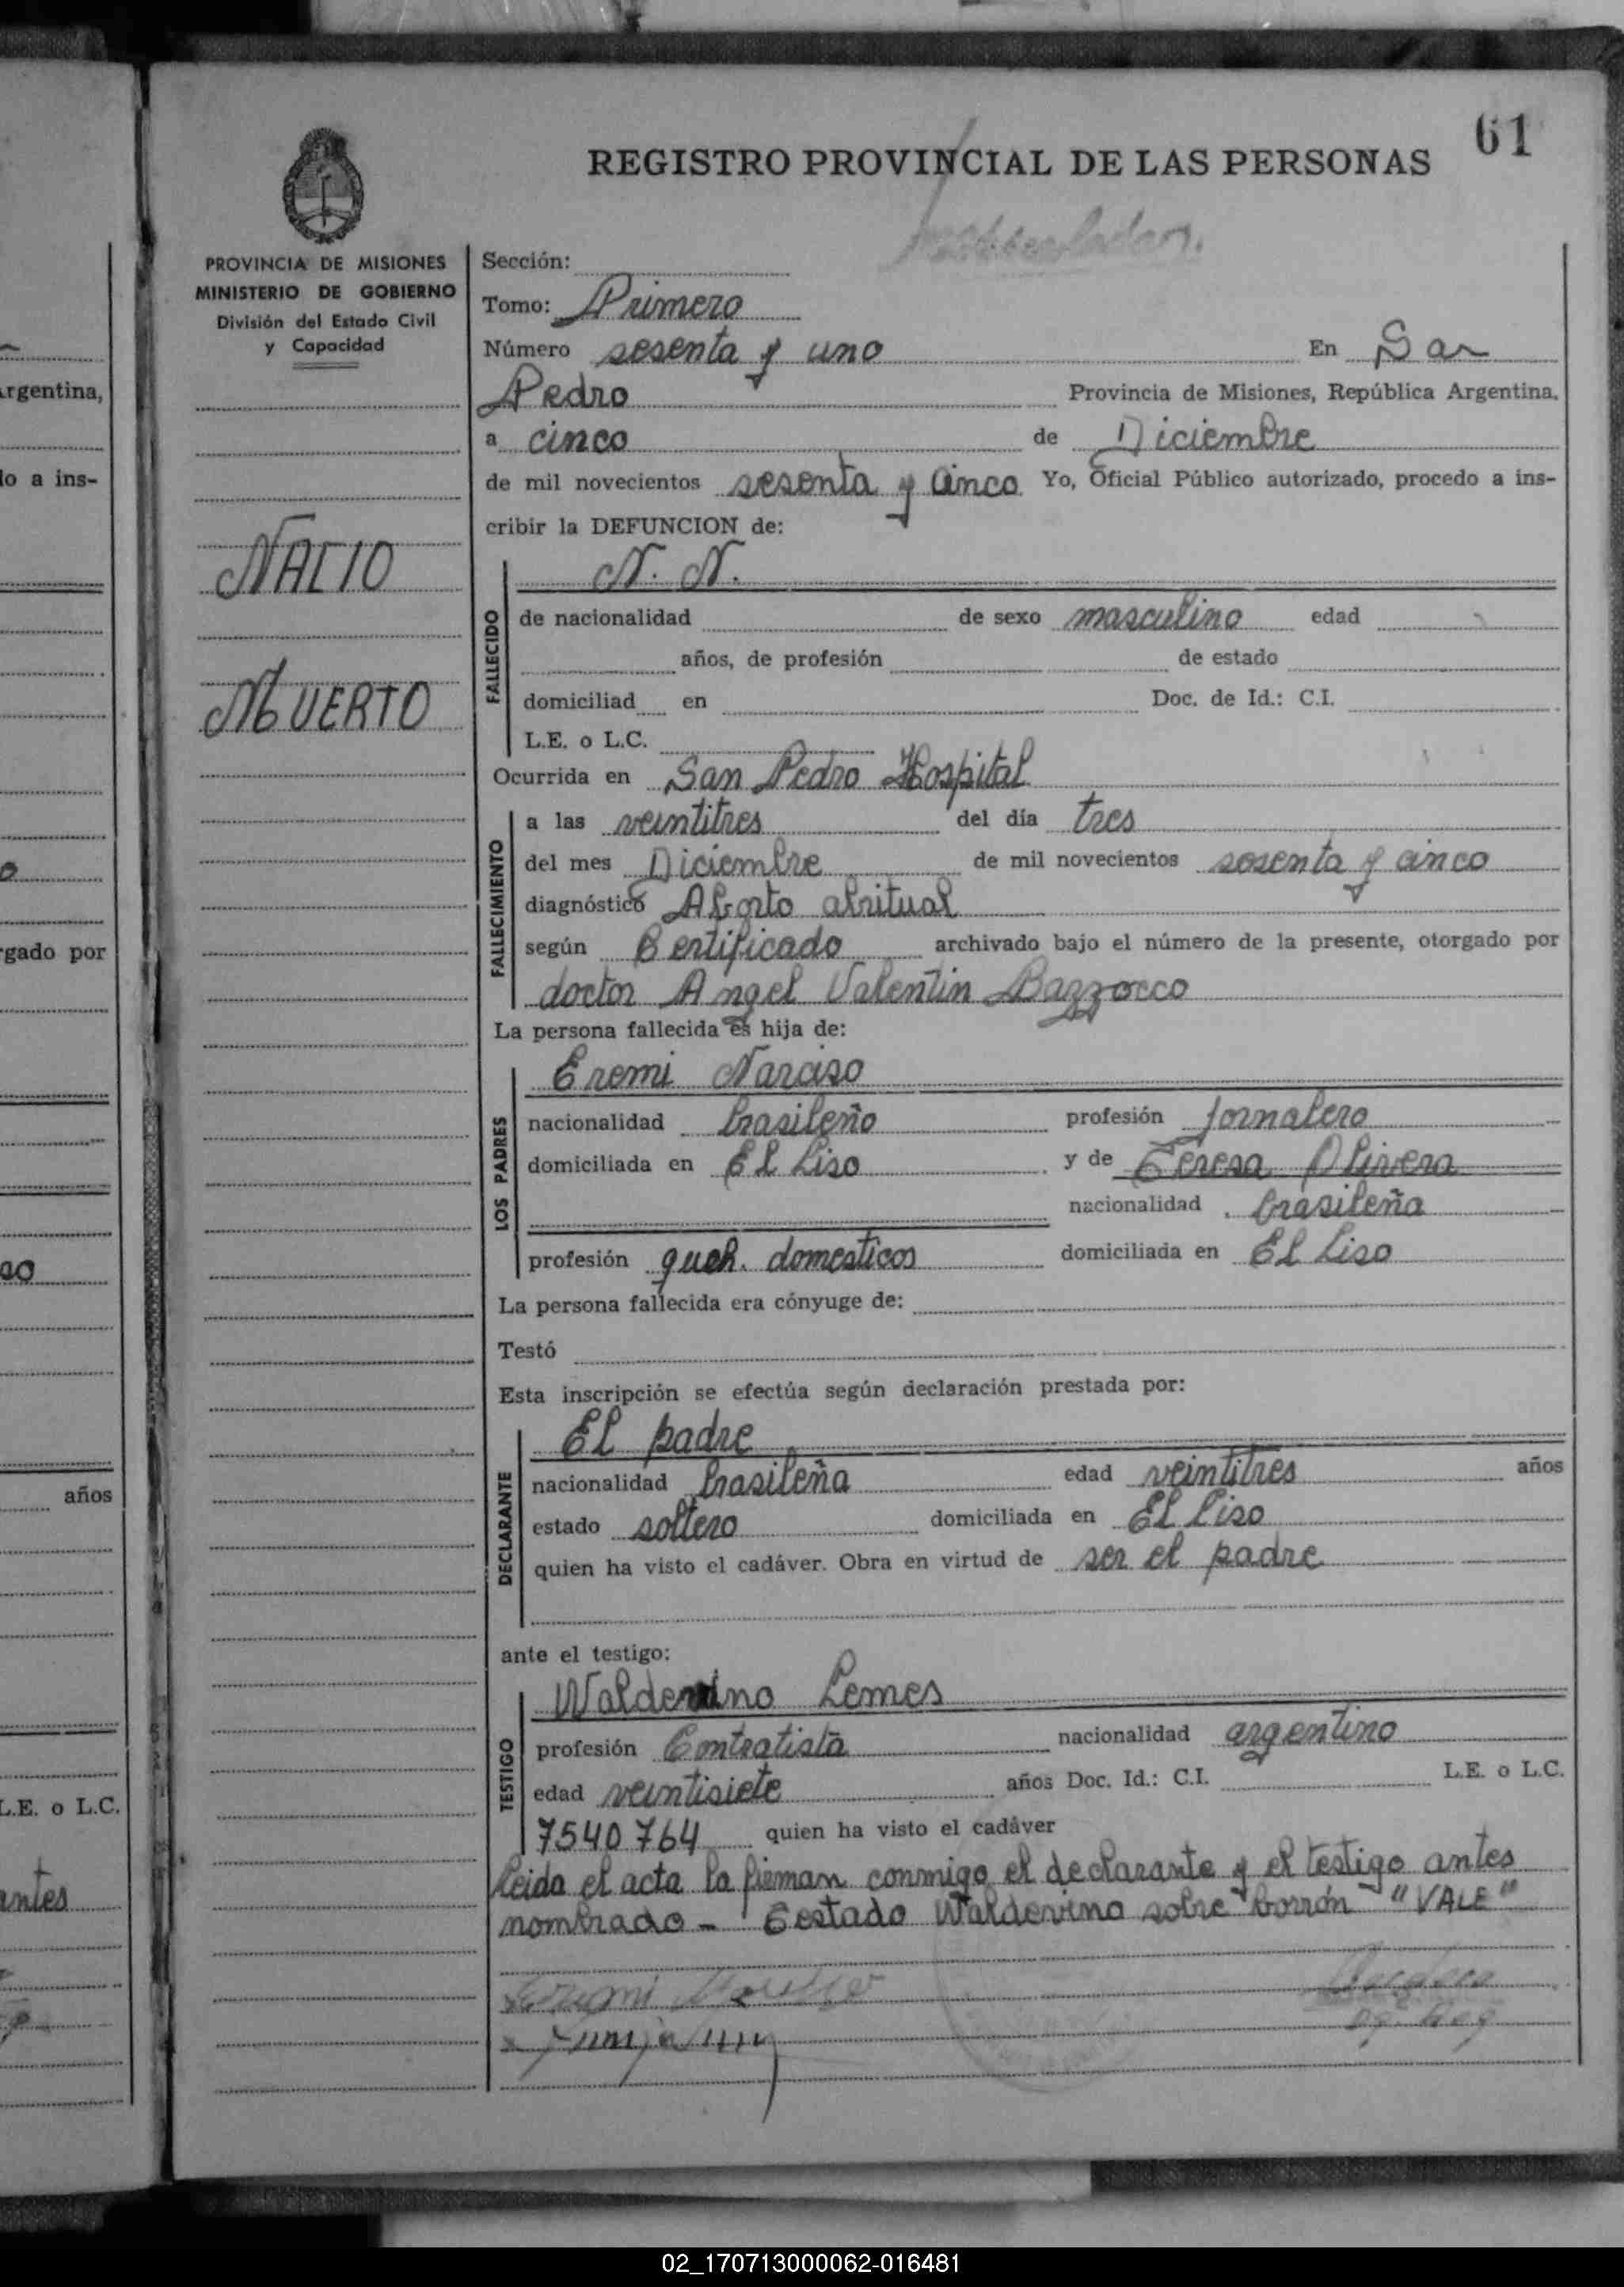 61
REGISTRO PROVINCIAL DE LAS PERSONAS
PROVINCIA DE MISIONES
MINISTERIO DE GOBIERNO
División del Estado Civil
y Capacidad
NACIO
MUERTO
Sección:
Tomo: Primero
Número sesenta y uno En San
Pedro Provincia de Misiones, República Argentina,
a cinco de Diciembre
de mil novecientos sesenta y cinco Yo, Oficial Público autorizado, procedo a ins-
cribir la DEFUNCION de:
FALLECIDO
N. N.
de nacionalidad de sexo masculino edad
años, de profesión de estado
domiciliad en Doc. de Id.: C.I.
L.E. o L.C.
Ocurrida en San Pedro Hospital
FALLECIMIENTO
a las veintitres del día tres
del mes Diciembre de mil novecientos sesenta y cinco
diagnóstico Aborto abritual
según Certificado archivado bajo el número de la presente, otorgado por
doctor Angel Valentin Bazzocco
La persona fallecida es hija de:
LOS PADRES
Eremi Narciso
nacionalidad brasileño profesión jornalero
domiciliada en El Liso y de Teresa Olivera
nacionalidad brasileña
profesión queh. domesticos domiciliada en El Liso
La persona fallecida era cónyuge de:
Testó
Esta inscripción se efectúa según declaración prestada por:
DECLARANTE
El padre
nacionalidad brasileña edad veintitres años
estado soltero domiciliada en El Liso
quien ha visto el cadáver. Obra en virtud de ser el padre
ante el testigo:
TESTIGO
Waldevino Lemes
profesión Contratista nacionalidad argentino
edad veintisiete años Doc. Id.: C.I. L.E. o L.C.
7540764 quien ha visto el cadáver
Leida el acta la firman conmigo el declarante y el testigo antes
nombrado - Testado Waldevino sobre borrón "VALE"
rgentina,
lo a ins-
rgado por
so
años
L.E. o L.C.
antes
02_170713000062-016481